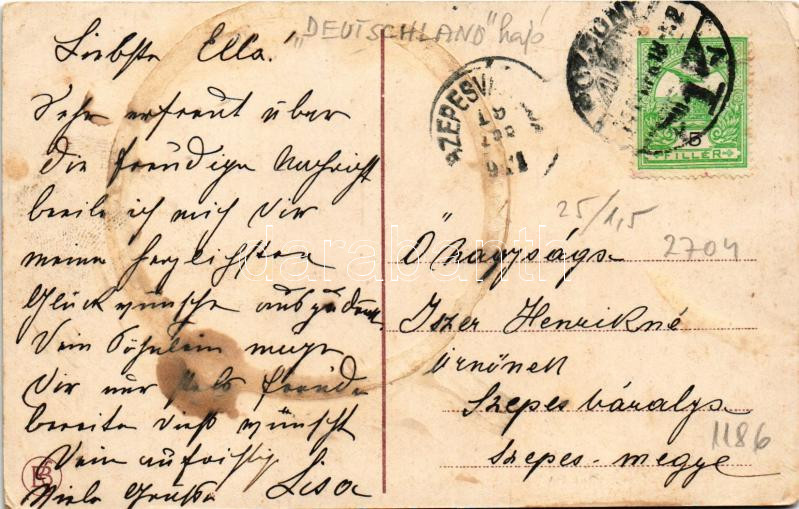 "DEUTSCHLAND" hajó
Liebste Ella!
Sehr erfreut über
die freudige Nachricht
beeile ich mich Dir
meine herzlichsten
Glückwünsche auszudrück.
Dein Söhnlein möge
Dir nur stets Freude
bereiten dieß wünscht
Dein aufrichtig
Viele Grüße Lisa
SZEPESVÁ
POZSONY
5
FILLER
25/1,5
2704
Őnagysága
Iszer Henrikné
úrnőnek
Szepes Váralya
1186
Szepes-megye
darabanth